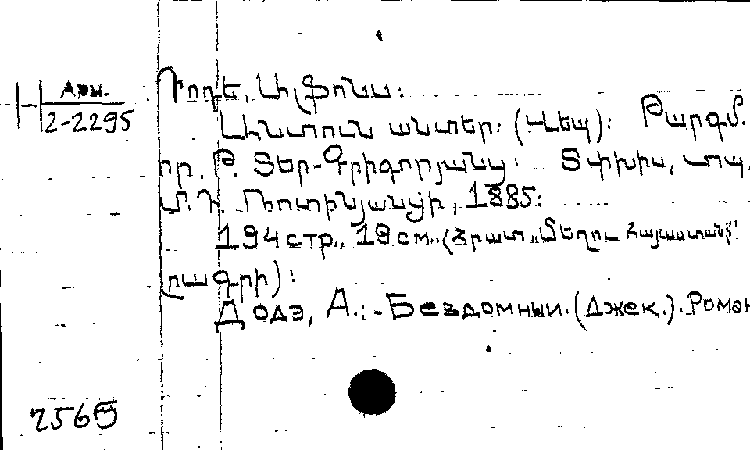 Арм.
2-2295
Դոդե, Ալֆոնս:
Անտուն անտեր: (Վեպ): Թարգմ.
որ. Թ. Տեր-Գրիգորյանց: Տփխիս, տպ.
Մ. Դ. Ռոտինյանցի, 1885:
194 стр., 19 см., (Հրատ. „Մեղու Հայաստանի"
րագրի):
Додэ, А.:- Бездомный. (Джек.). Роман
2565